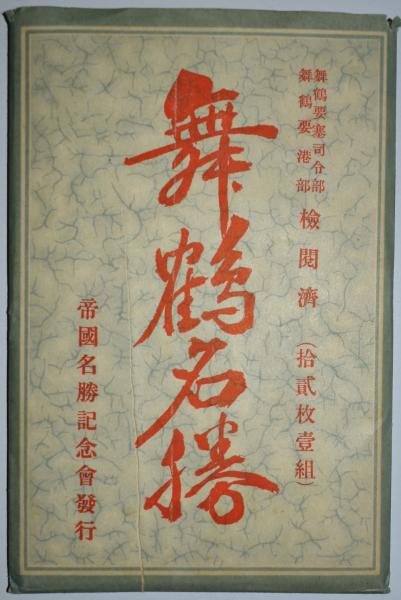 舞鶴要塞司令部
舞鶴要港部
檢閲濟(拾貳枚壹組)
舞鶴名勝
帝國名勝記念會發行